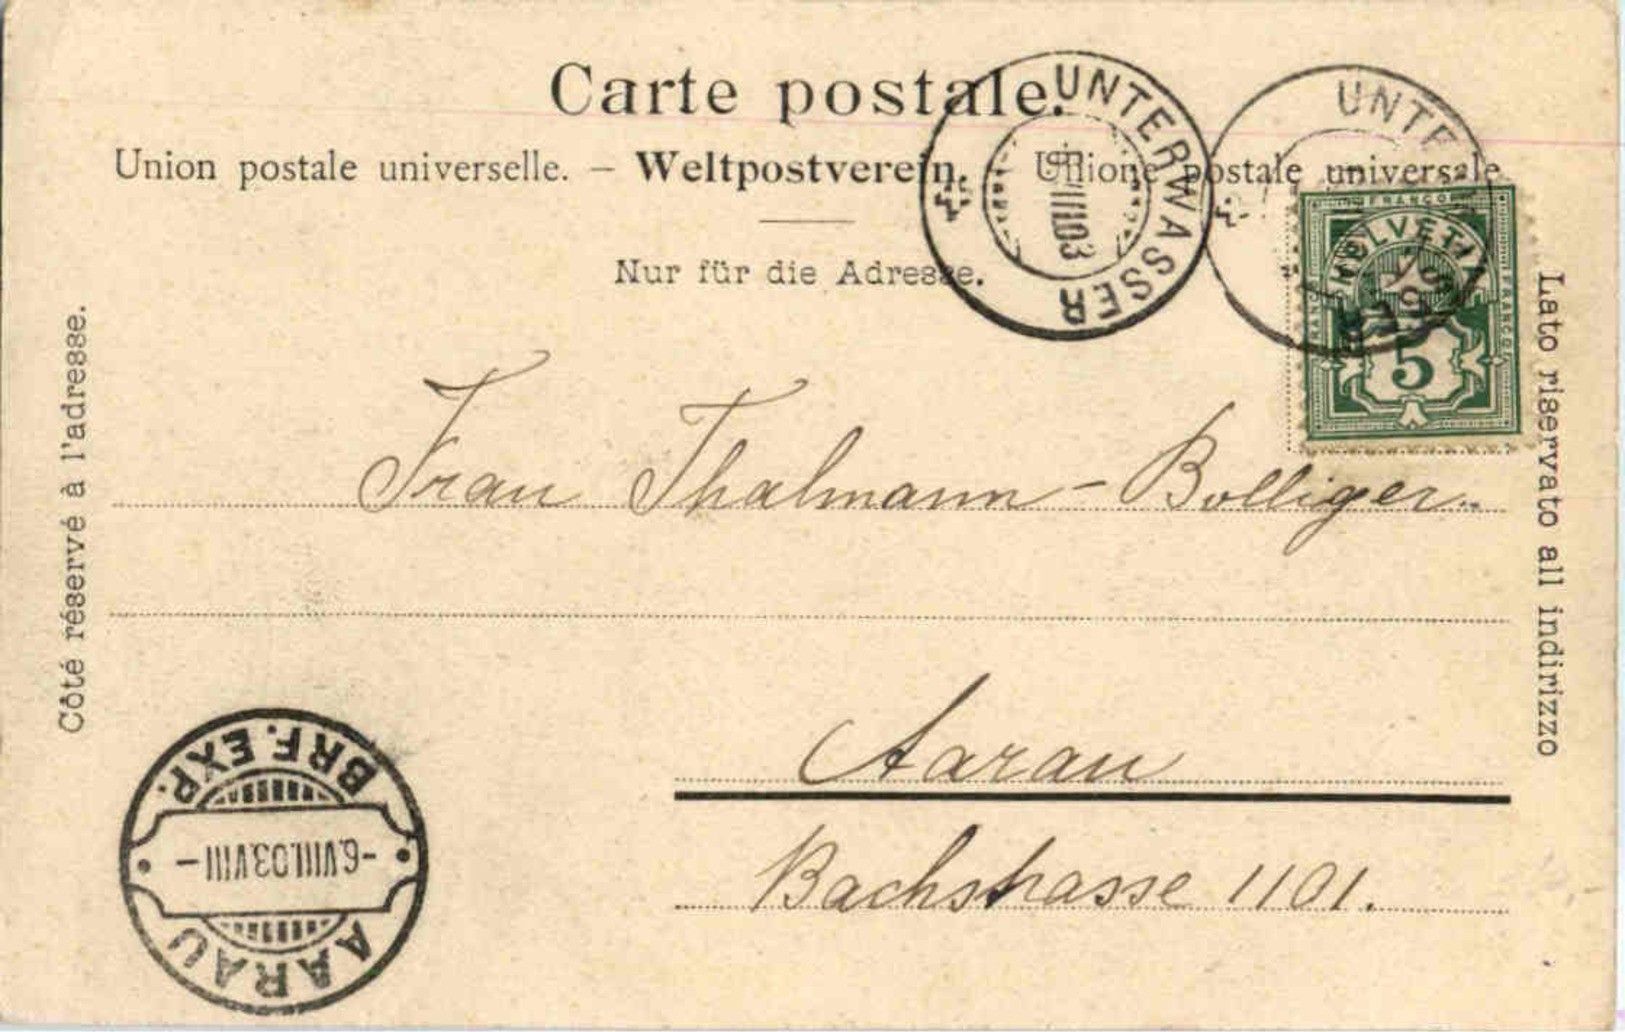 Carte postale.
Union postale universelle. – Weltpostverein. Unione postale universale
Nur für die Adresse.
Côté réservé à l'adresse.
Lato riservato all indirizzo
UNTERWASSER
VIII.03
UNTE
FRANCO
HELVETIA
FRANCO
5
Frau Thalmann-Bolliger.
Aarau
Bachstrasse 1101.
AARAU
-6.VIII.03.VIII-
BRF. EXP.